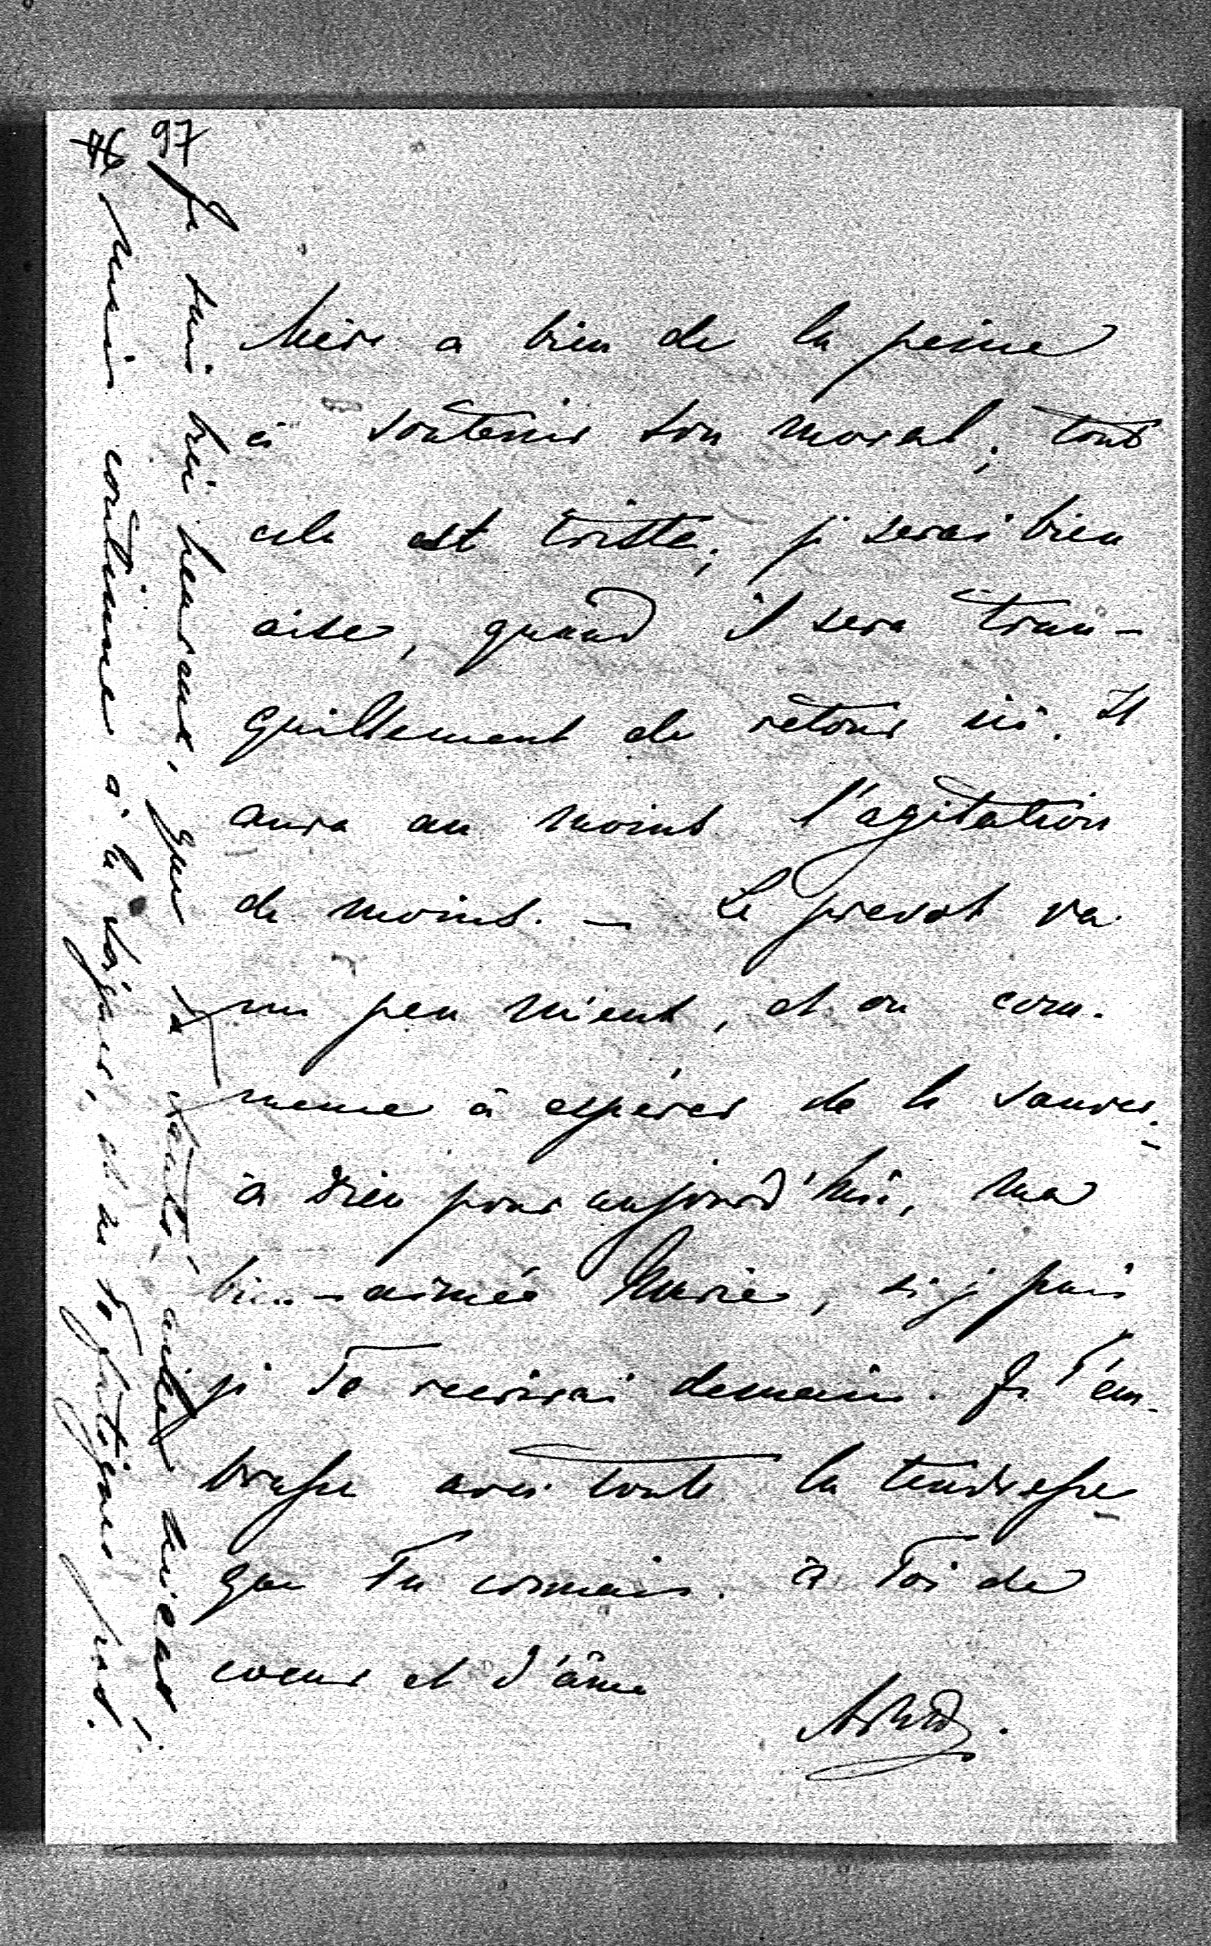 97
Mère a bien de la peine
à soutenir son moral; tout
cela est triste; je serai bien
aise, quand il sera tran-
quillement de retour ici. Il
aura au moins l'agitation
de moins. — Le prevot va
un peu mieux, et on com-
mence à espérer de le sauver.—
à Dieu pour aujourd'hui, ma
bien-aimée Marie, si je puis
je te recrirai demain. Je t'em-
brasse avec toute la tendresse
que tu connais. à toi de
coeur et d'âme
Je suis très heureux, que ta santé aille mieux!
Mais continue à te soigner, et ne te fatigues pas!